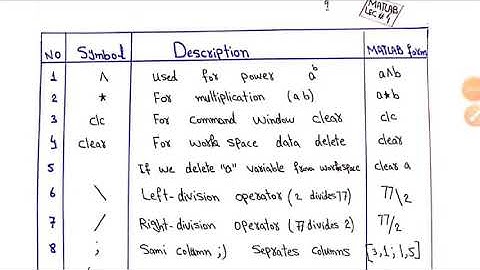 9
MATLAB
LEC # 1
NO Symbol Description MATLAB form
1 ^ used for power a^b a^b
2 * For multiplication (ab) a*b
3 clc For Command window clear clc
4 clear For work space data delete clear
5 If we delete "a" variable from workspace clear a
6 \ Left-division operator (2 divides 77) 77\2
7 / Right-division operator (77 divides 2) 77/2
8 ; Sami column ;) Seprates columns [3,1;1,5]